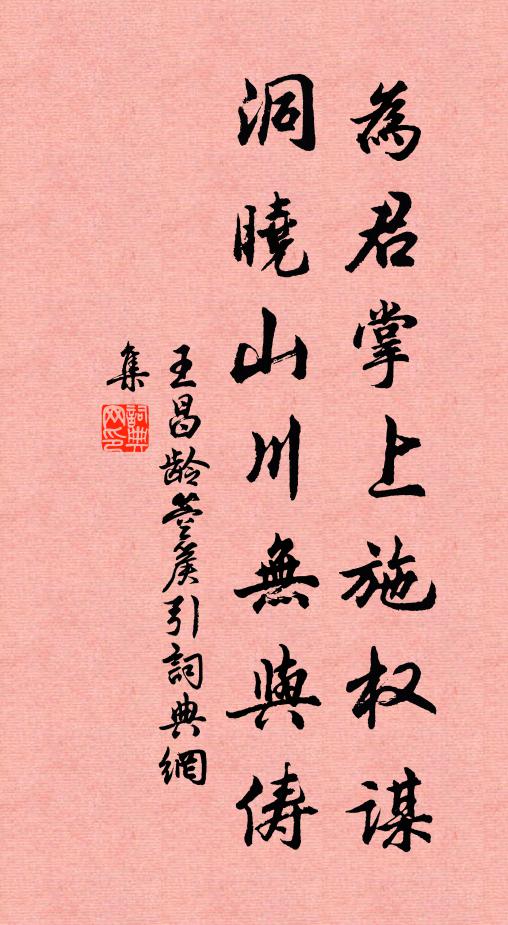 為君掌上施权謀
洞曉山川無與儔
王昌龄箜篌引詞典網
集
詞典
网印